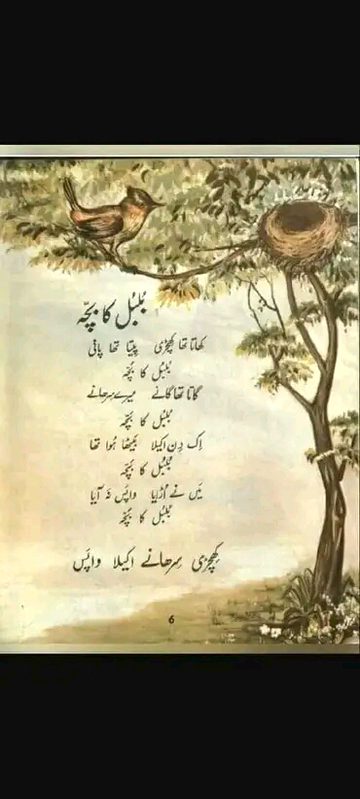 بُلبُل کا بچّہ
کھاتا تھا کھچڑی پیتا تھا پانی
بُلبُل کا بچّہ
گاتا تھا گانے میرے سرھانے
بُلبُل کا بچّہ
اِک دِن اکیلا بیٹھا ہُوا تھا
بُلبُل کا بچّہ
مَیں نے اُڑایا واپَس نہ آیا
بُلبُل کا بچّہ
کِھچڑی سِرھانے اکیلا واپَس
6